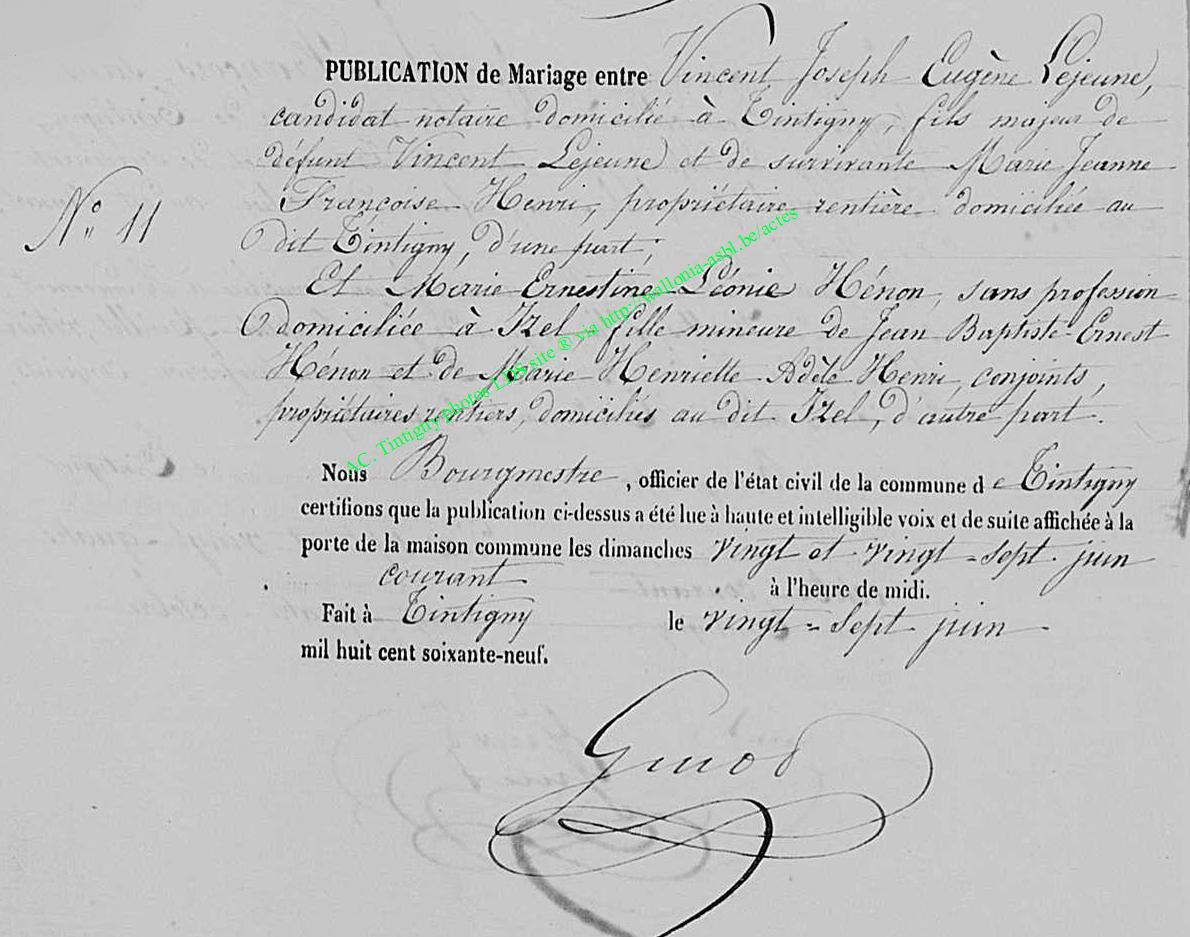 PUBLICATION de Mariage entre Vincent Joseph Eugène Lejeune,
candidat notaire domicilié à Tintigny, fils majeur de
défunt Vincent Lejeune et de survivante Marie Jeanne
Françoise Henri, propriétaire rentière domiciliée au
N° 11
dit Tintigny, d'une part;
Et Marie Ernestine Léonie Hénon, sans profession
domiciliée à Izel, fille mineure de Jean Baptiste Ernest
Hénon et de Marie Henriette Adèle Henri, conjoints,
propriétaires rentiers, domiciliés au dit Izel, d'autre part.
AC. Tintigny photos LDS site ® via http://wallonia-asbl.be/actes
Nous Bourgmestre, officier de l'état civil de la commune de Tintigny
certifions que la publication ci-dessus a été lue à haute et intelligible voix et de suite affichée à la
porte de la maison commune les dimanches vingt et vingt-sept juin
courant à l'heure de midi.
Fait à Tintigny le vingt-sept juin
mil huit cent soixante-neuf.